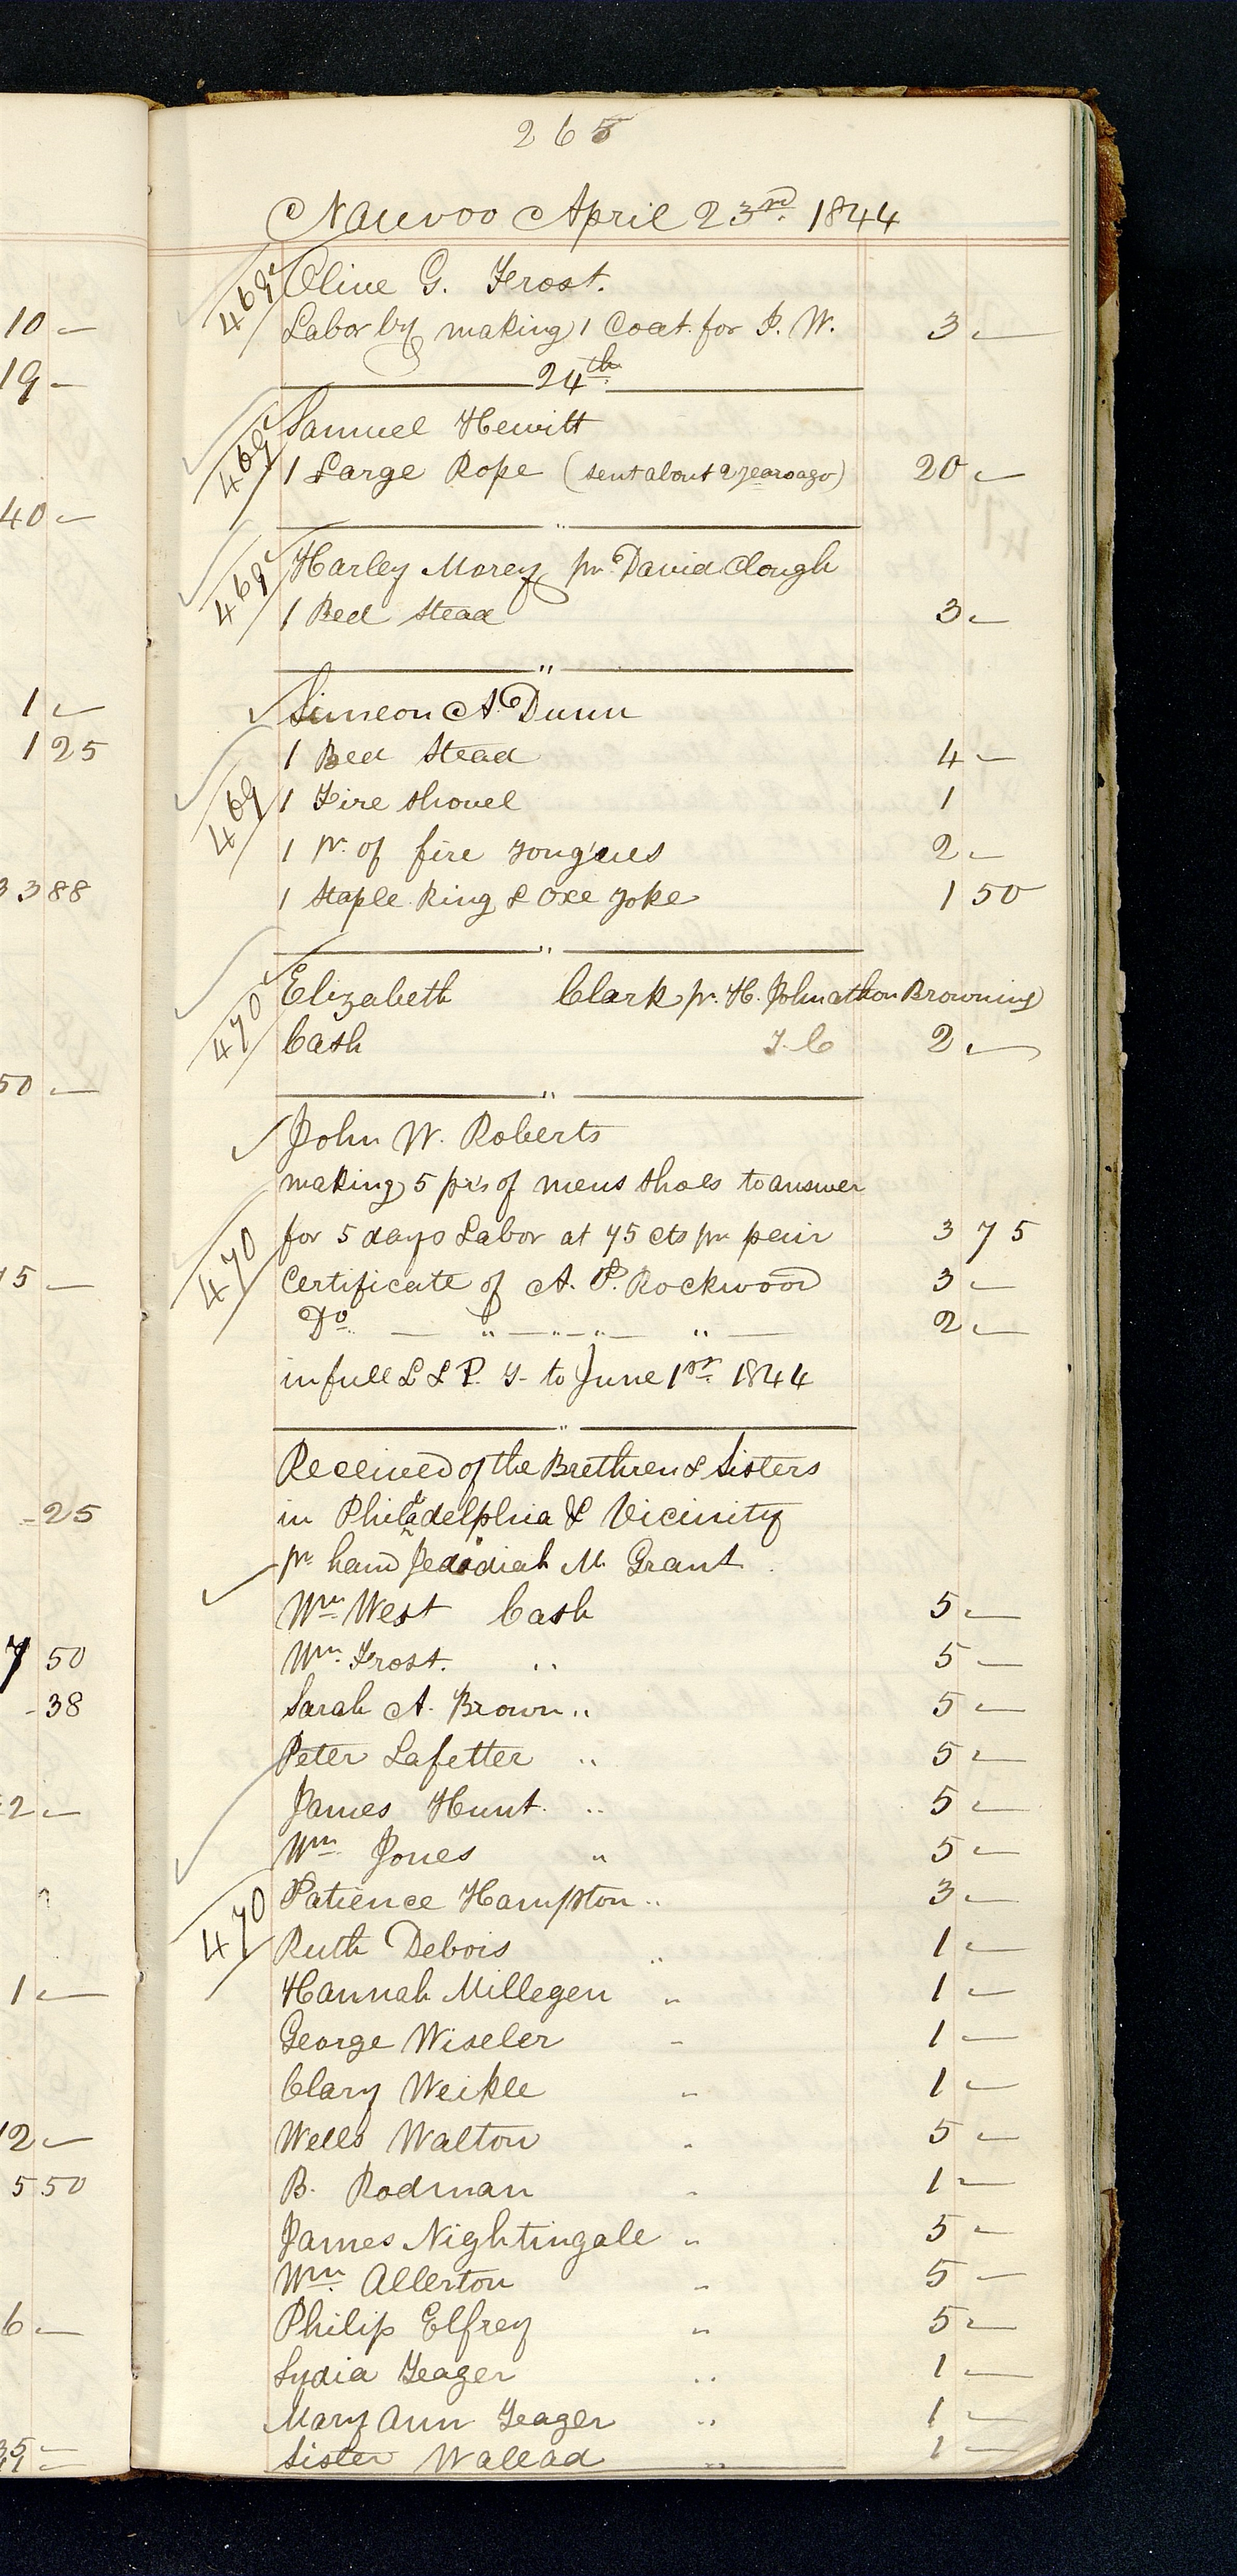 265
Nauvoo April 23rd. 1844
469
Olive G. Frost.
Labor by making 1 Coat for J. W. 3 —
24th.
469
Samuel Hewitt
1 Large Rope (sent about 2 years ago) 20 —
"
469
Harley Morey pr. David Clough
1 Bed Stead 3 —
"
Simeon A. Dunn
1 Bed Stead 4 —
469
1 Fire Shovel 1
1 Pr. of fire Tongues 2 —
1 Staple Ring & Oxe Yoke 1 50
"
470
Elizabeth Clark pr. H. Johnathon Browning
Cash T. C 2 —
"
John W. Roberts
making 5 prs of mens Shoes to answer
470
for 5 days Labor at 75 cts pr pair 3 75
Certificate of A. P. Rockwood 3 —
Do. — " — " — " — " — 2 —
in full L & P. T- to June 1st. 1844
"
Received of the Brethren & Sisters
in Philadelphia & Vicinity
pr hand Jedediah M. Grant
Wm West Cash 5 —
Wm. Frost. " 5 —
Sarah A. Brown " 5 —
Peter Lafetter " 5 —
James Hunt. " 5 —
Wm Jones " 5 —
470
Patience Hampton " 3 —
Ruth Debois " 1 —
Hannah Millegen " 1 —
George Wiseler " 1 —
Clary Weikle " 1 —
Wells Walton " 5 —
B. Rodman " 1 —
James Nightingale " 5 —
Wm. Allerton " 5 —
Philip Elfrey " 5 —
Lydia Yeager " 1 —
Mary Ann Yeager " 1 —
Sister Wallad " 1 —
10 —
19 —
40 —
1 —
1 25
3 3 88
50 —
15 —
- 25
7 50
- 38
2 —
1 —
12 —
5 50
6 —
35 —